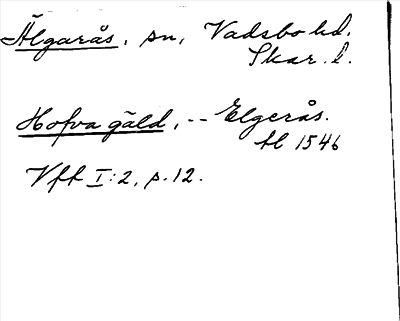 Älgarås, sn, Vadsbo hd.
Skar. l.
Hofva gäld, -- Elgerås.
tl 1546
Vff I:2, p. 12.